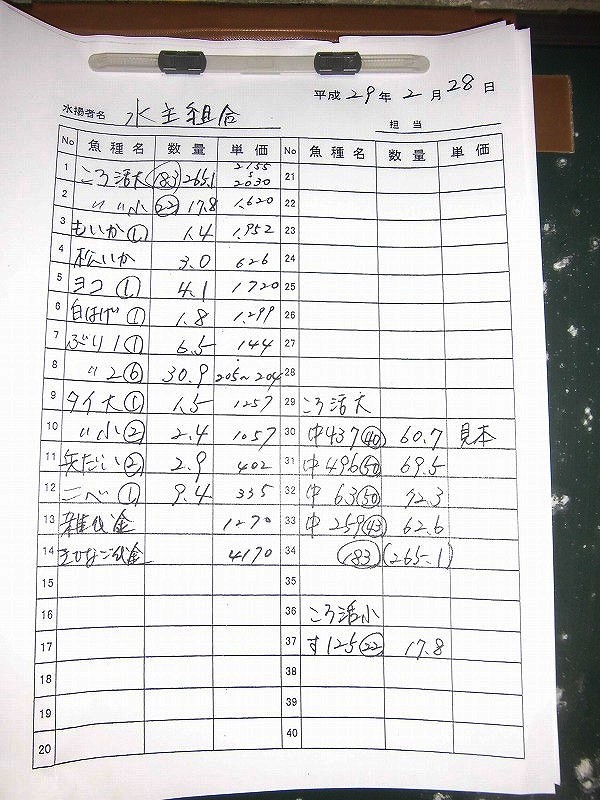 平成 29 年 2 月 28 日
水揚者名 水主組合
担 当
No 魚 種 名 数 量 単 価 No 魚 種 名 数 量 単 価
1 ころ活大 183 265.1 2155 5 2030 21
2 〃 〃小 22 17.8 1,620 22
3 もいか 1 1.4 1,952 23
4 松いか 3.0 626 24
5 ヨコ 1 4.1 1720 25
6 白はげ 1 1.8 1,299 26
7 ぶり1 1 6.5 144 27
8 〃 2 6 30.9 205~204 28
9 タイ大 1 1.5 1257 29 ころ活大
10 〃小 2 2.4 1057 30 中437 40 60.7 見本
11 矢だい 2 2.9 402 31 中496 50 69.5
12 ニベ 1 9.4 335 32 中 63 50 72.3
13 雑代金 1270 33 中 259 43 62.6
14 きびなご代金 4170 34 183 (265.1)
15 35
16 36 ころ活小
17 37 す125 22 17.8
18 38
19 39
20 40